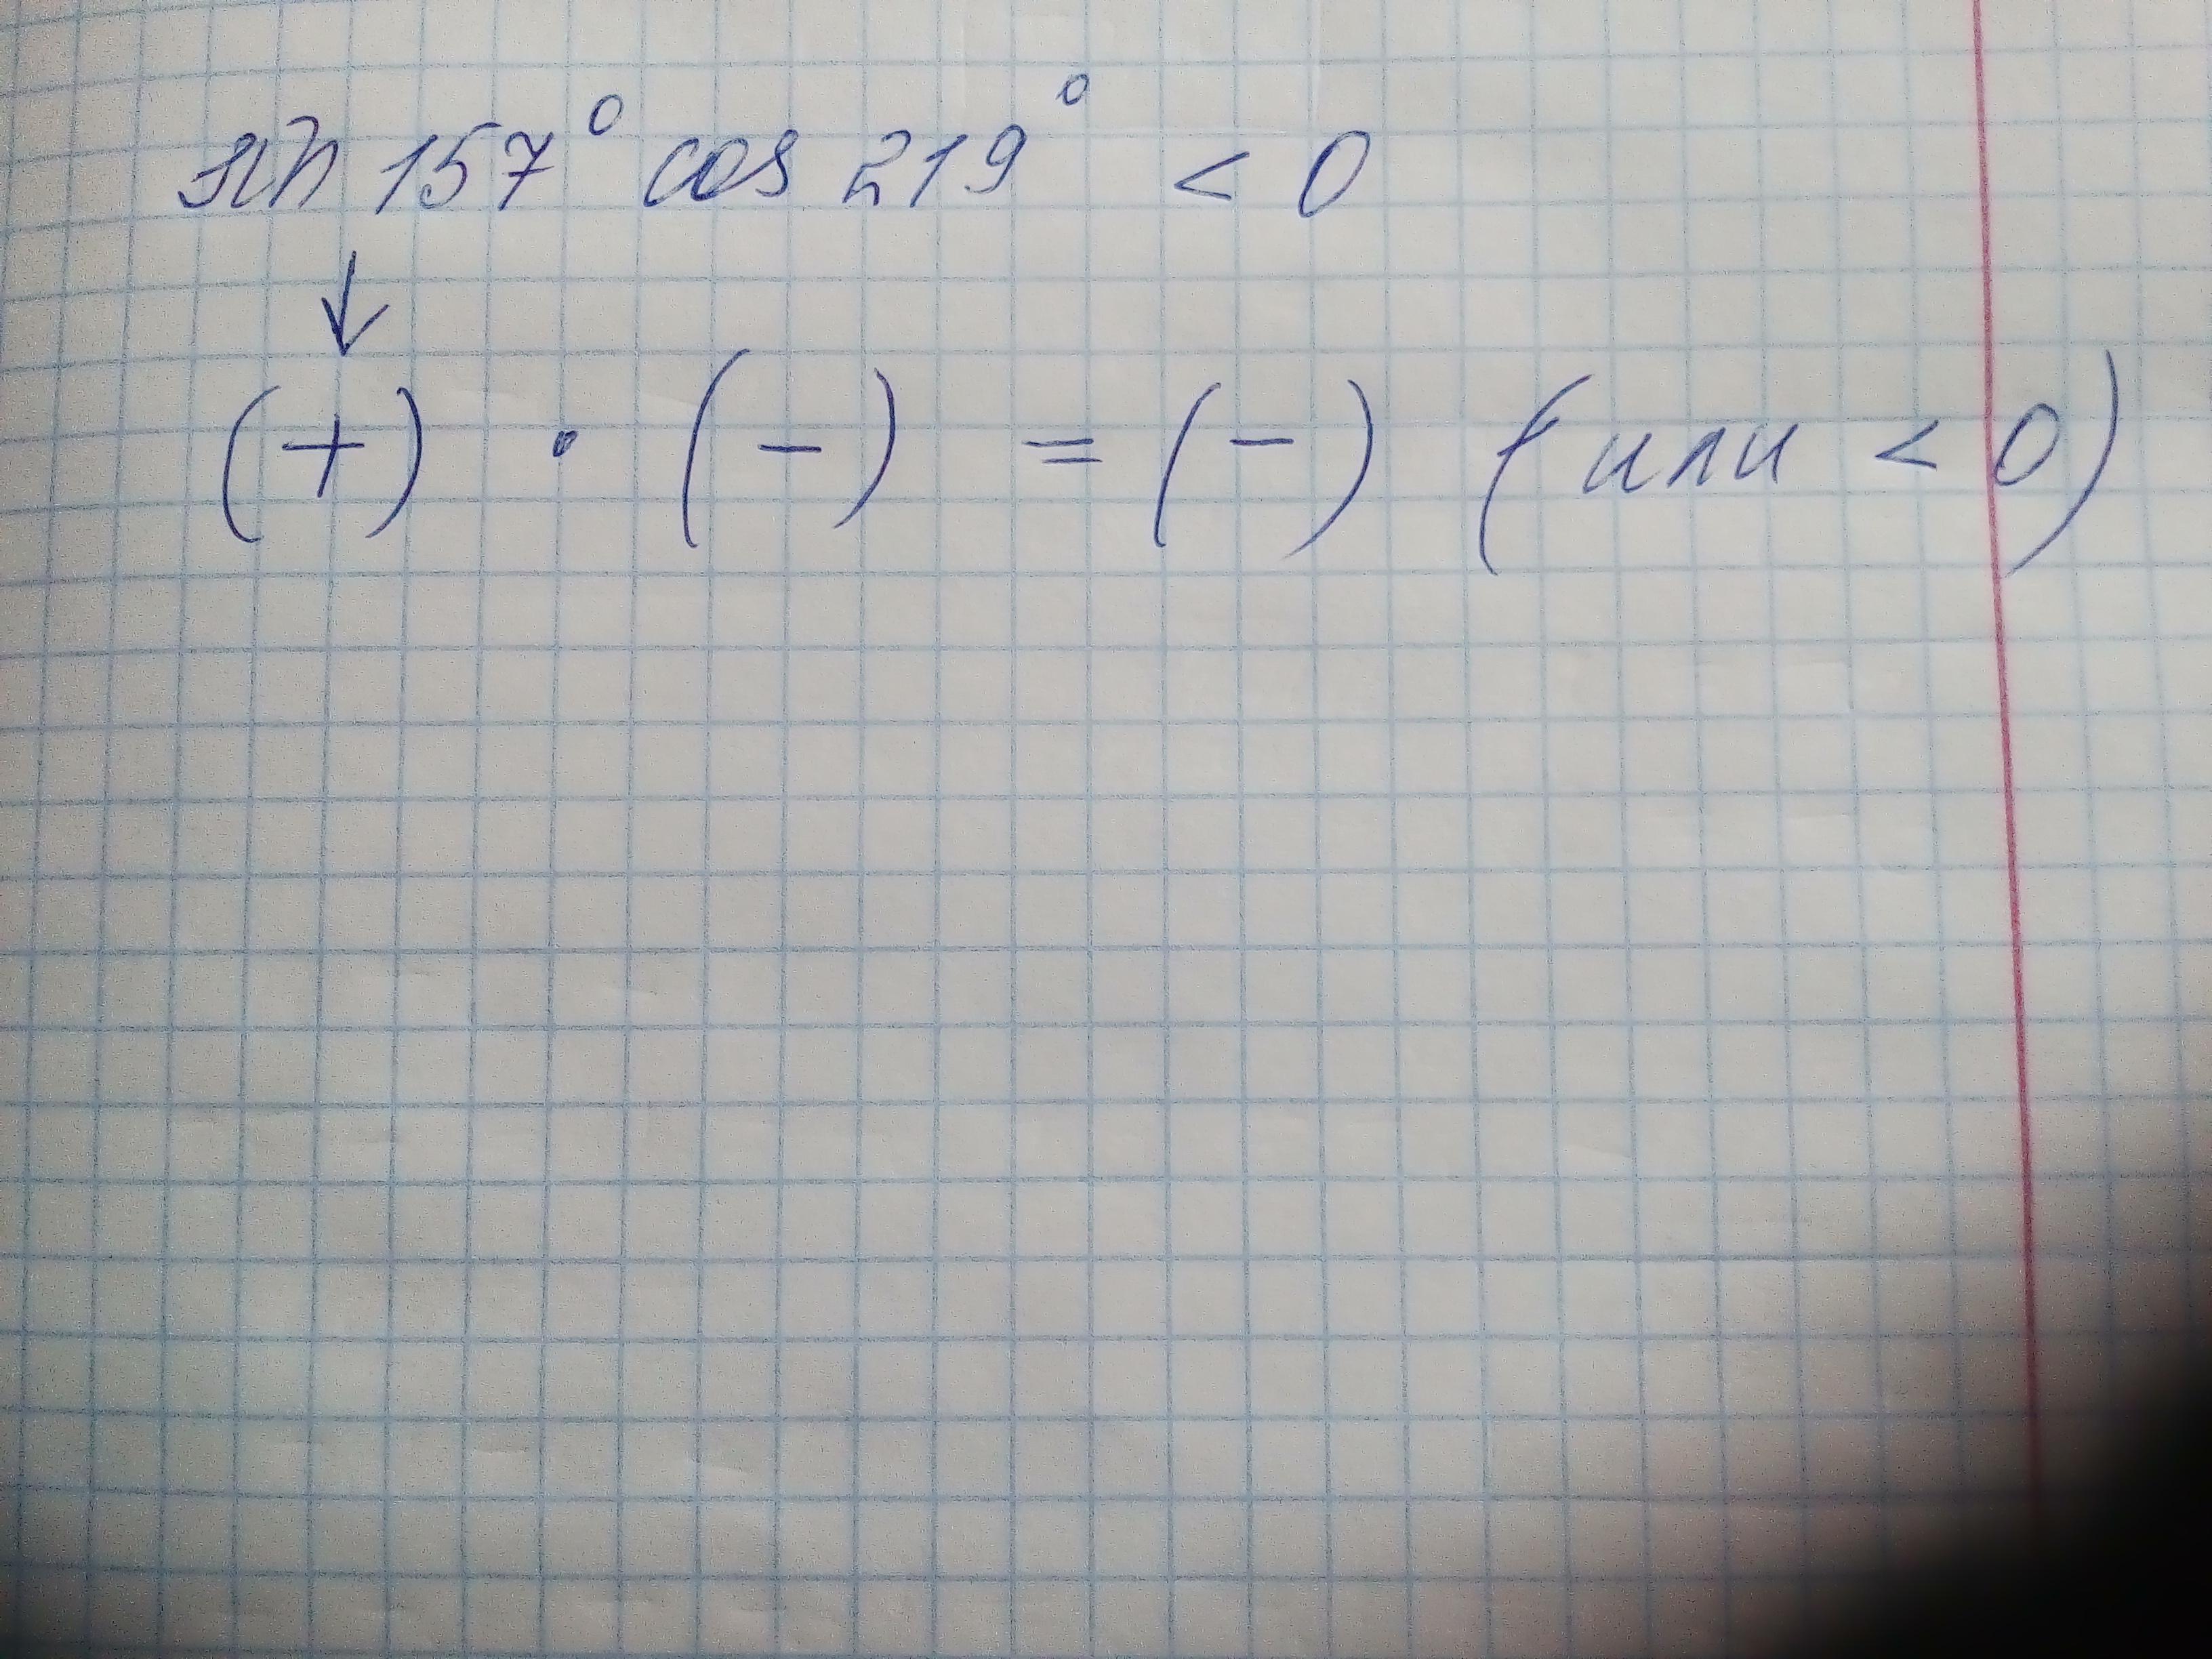 sin 157° cos 219° < 0
↓
(+) · (-) = (-) (или < 0)